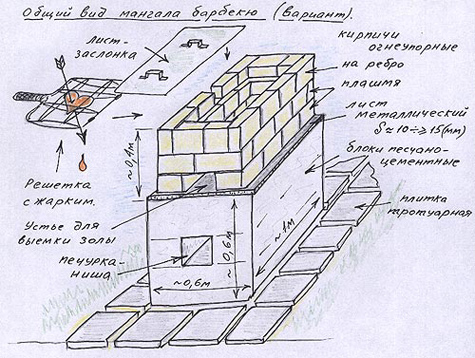 Общий вид мангала барбекю (Вариант).
Лист-
заслонка
кирпичи
огнеупорные
на ребро
плашмя
лист
металлический
δ ≈ 10÷15(мм)
блоки песчано-
цементные
плитка
тротуарная
Решетка
с жарким.
Устье для
выемки золы
печурка-
ниша
~0,4м
~0,6м
~0,6м
~1м